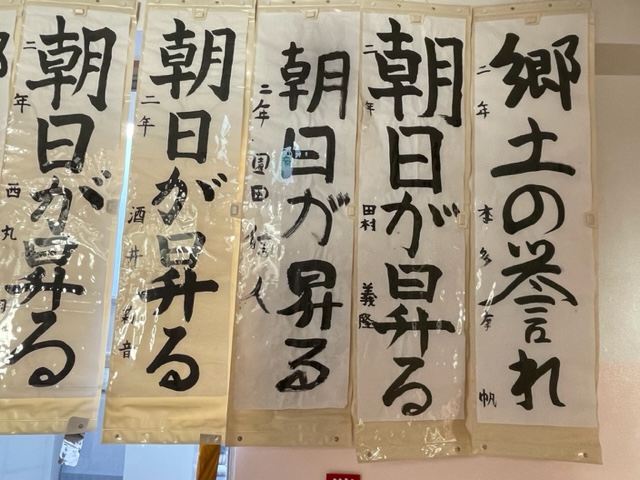 郷土の誉れ
二年
朝日が昇る
二年 田村 義隆
朝日が昇る
二年 園田
朝日が昇る
二年 酒井 音
朝日が昇る
二年 西丸